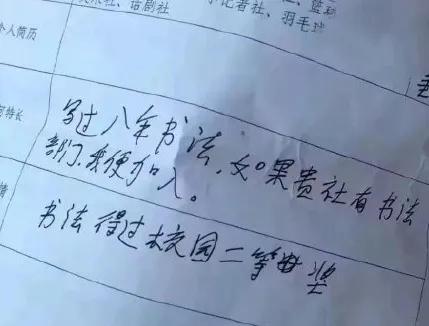 美术社、话剧社
小记者社、羽毛球
篮球
个人简历
特长
写过八年书法,如果贵社有书法
部门,我便加入。
情
书法得过校园二等奖